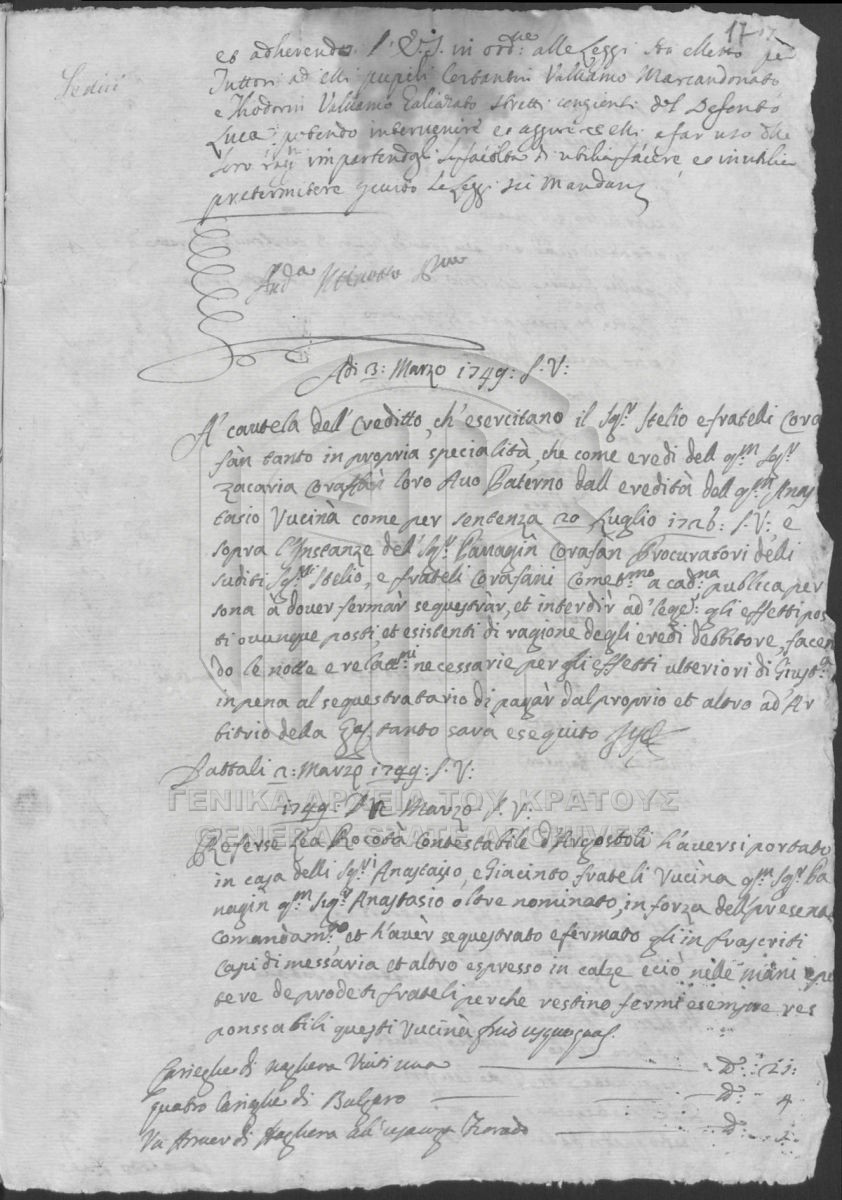 17 17
Sedici
et adherendo S. E. S. in ord:ne alle Leggi ha elletto per
Tuttori ad essi pupili Costantin Valsamo Marcandonato
e Thodorin Valsamo Galiazato stretti congienti del Defonto
Luca potendo intervenire et assure
loro rag.ni impartendogli la facoltà di utilia facere et inutilia
pretermitere giusto le Leggi sic Mandans
Adi 3: Marzo 1749: S. V:
A' cautela dell' Creditto, ch' esercitano il Sg.r Stelio e fratelli Cora
fàn tanto in propria specialità, che come eredi del q.m Sg.r
Zacaria Coraffàn loro Avo Paterno dall eredità del q.m Anas
tasio Vucinà come per sentenza 20 Luglio 1726: S. V: e
sopra l'Instanze dell' Sg.r Panagin Corafàn Procuratori delli
suditi Sg.ri Stelio, e frateli Corafani Comet.mo a cad.na publica per
sona à dover fermàr sequestràr, et interdir ad' lege: gli effetti pos
ti ovunque posti, et esistenti di ragione degli eredi debbitore, facen
do le notte e relac.ni necessarie per gli effetti ulteriori di Giust.a
in pena al sequestratario di pagàr dal proprio et altro ad' Ar
bitrio della tanto sarà eseguito
Dattali 2: Marzo 1749: S. V:
1749: Marzo S. V:
Referse Zea Rocotà Contestabile d'Argostoli h'aversi portato
in casa delli Sg.ri Anastasio, e Giacinto frateli Vucina q.m Sg.r Pa
nagin q.m Sg.r Anastasio oltre nominato, in forza dell' presente
Comandam.to et h'avèr sequestrato e fermato gli infrascriti
Capi di messaria et altro espresso in calze e ciò nelle mani e po
tere de predeti frateli perche restino fermi e sempre res
ponssabili questi Vucinà
Carieghe di Naghera Vinti una D: 21:
quatro Carieghe di Bulgaro D: 4
Un Armer di Naghera D:
ΓΕΝΙΚΑ ΑΡΧΕΙΑ ΤΟΥ ΚΡΑΤΟΥΣ
GENERAL STATE ARCHIVES